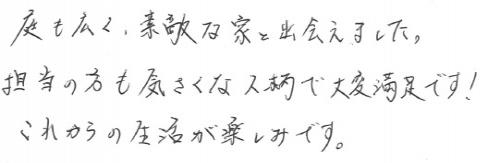 庭も広く、素敵な家と出会えました。
担当の方も気さくな人柄で大変満足です!
これからの生活が楽しみです。